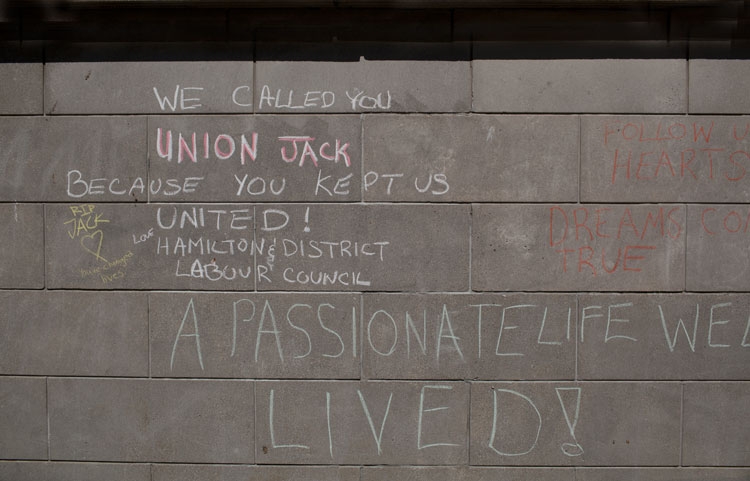 WE CALLED YOU
UNION JACK
BECAUSE YOU KEPT US
UNITED!
LOVE HAMILTON & DISTRICT
LABOUR COUNCIL
RIP
JACK
lives
FOLLOW
HEARTS
DREAMS CO
TRUE
A PASSIONATE LIFE WEL
LIVED!